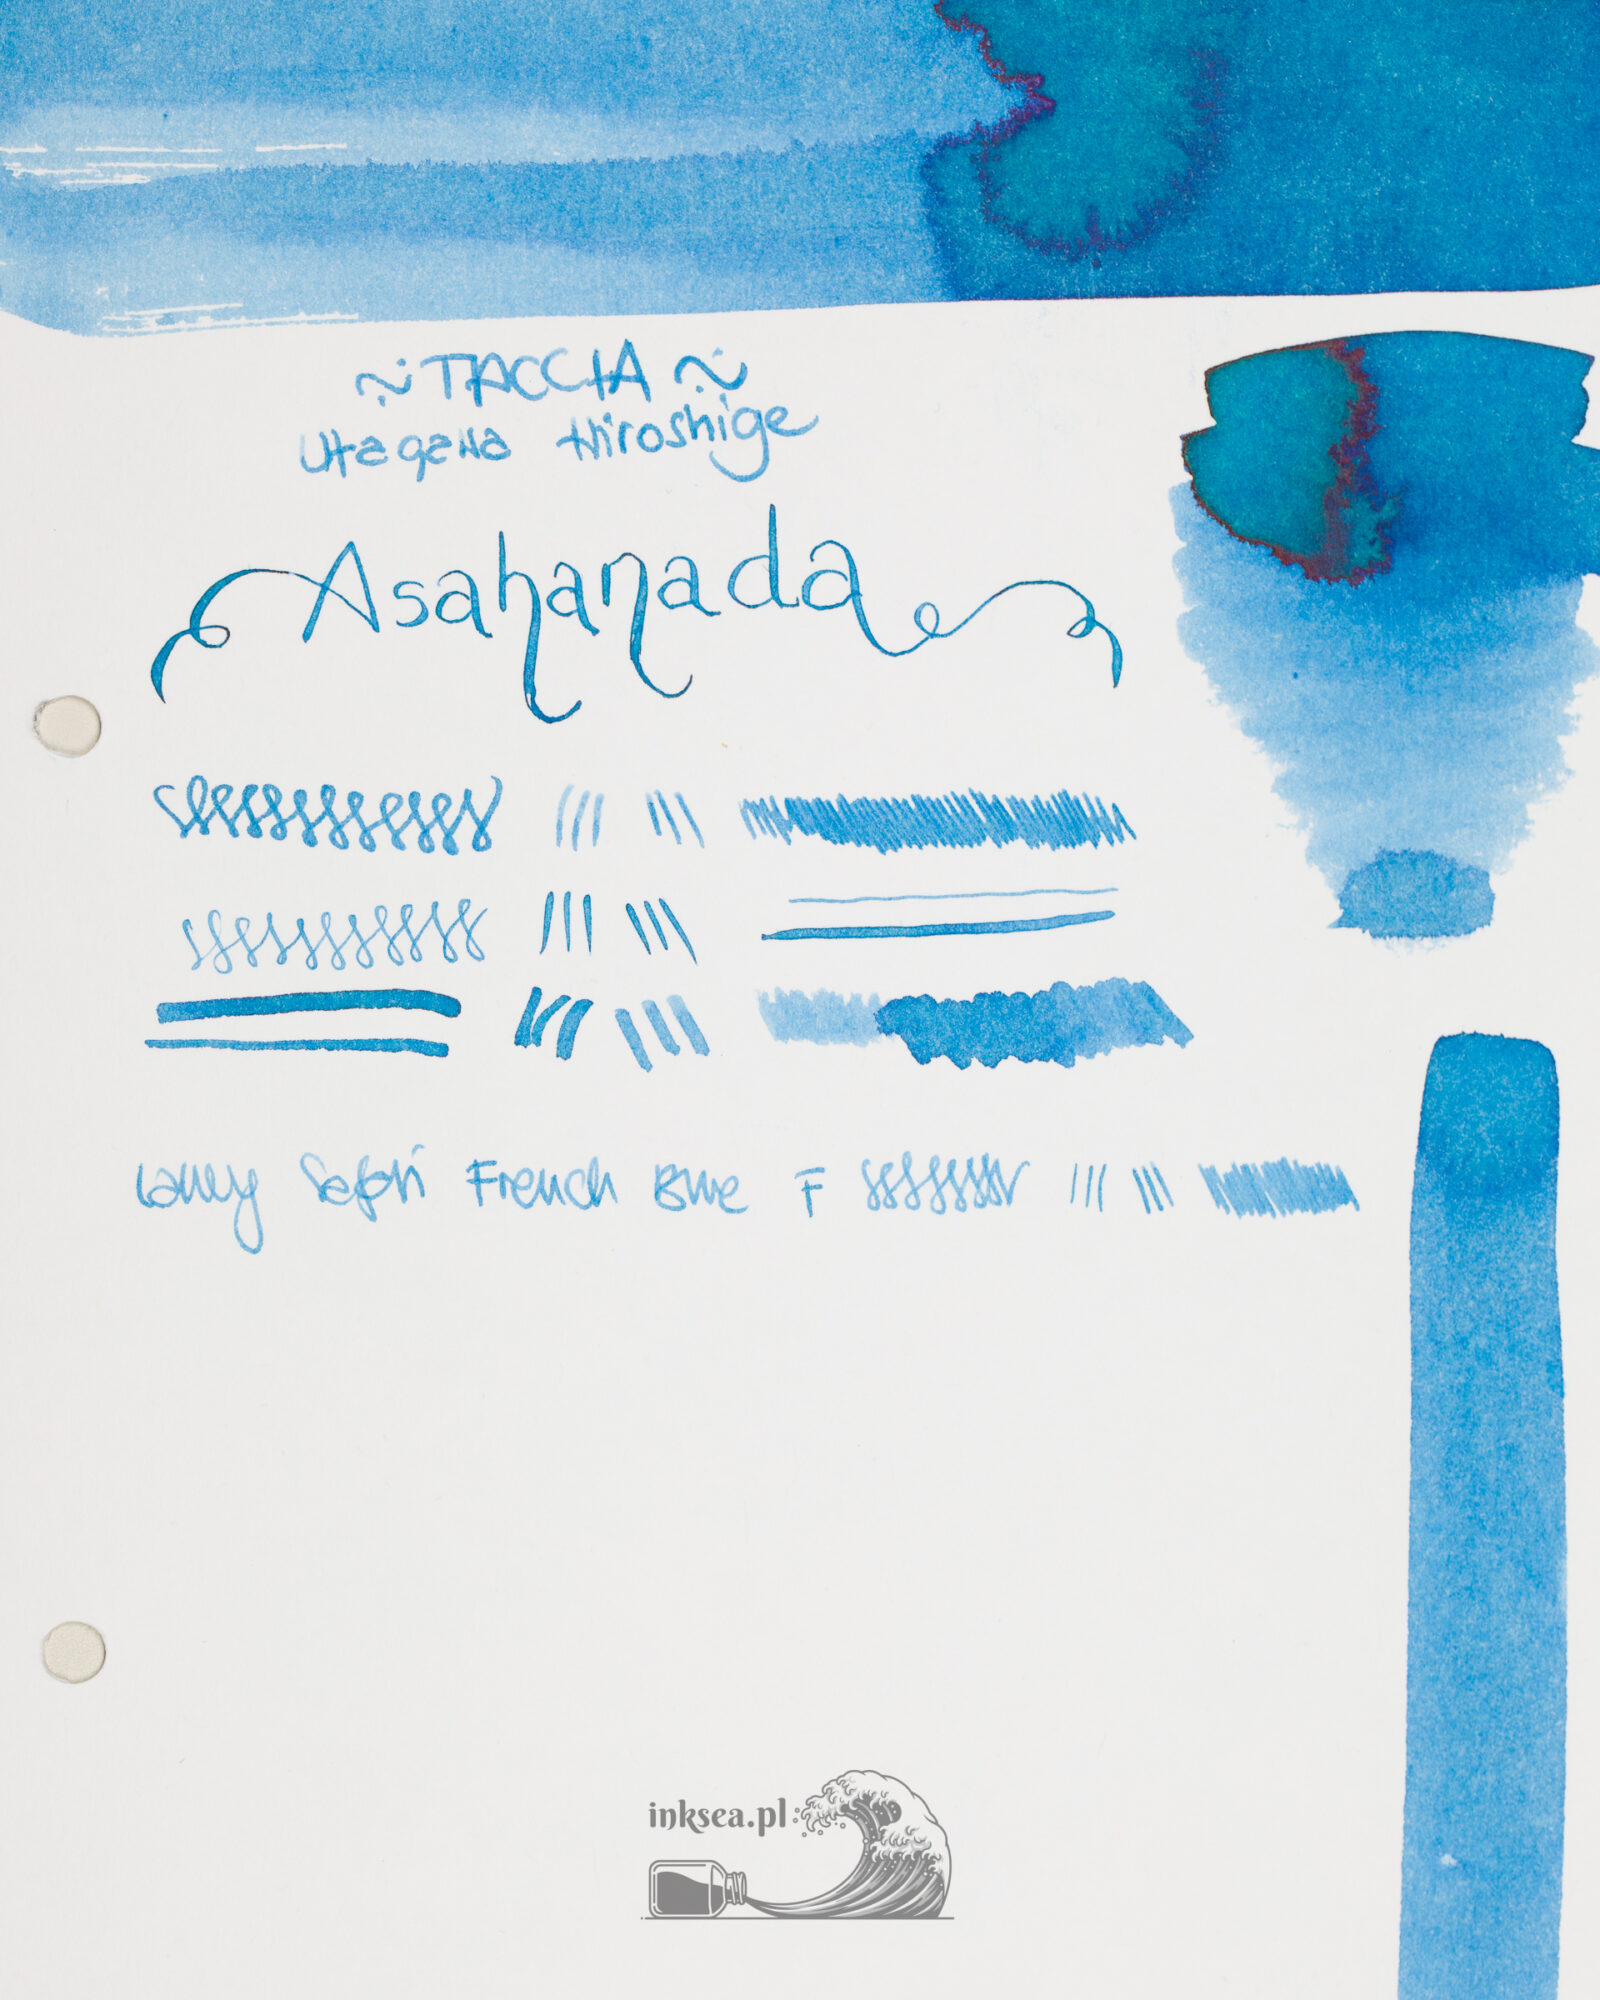 ~ TACCIA ~
Utagawa Hiroshige
Asahanada
Lamy Safari French Blue F
inksea.pl